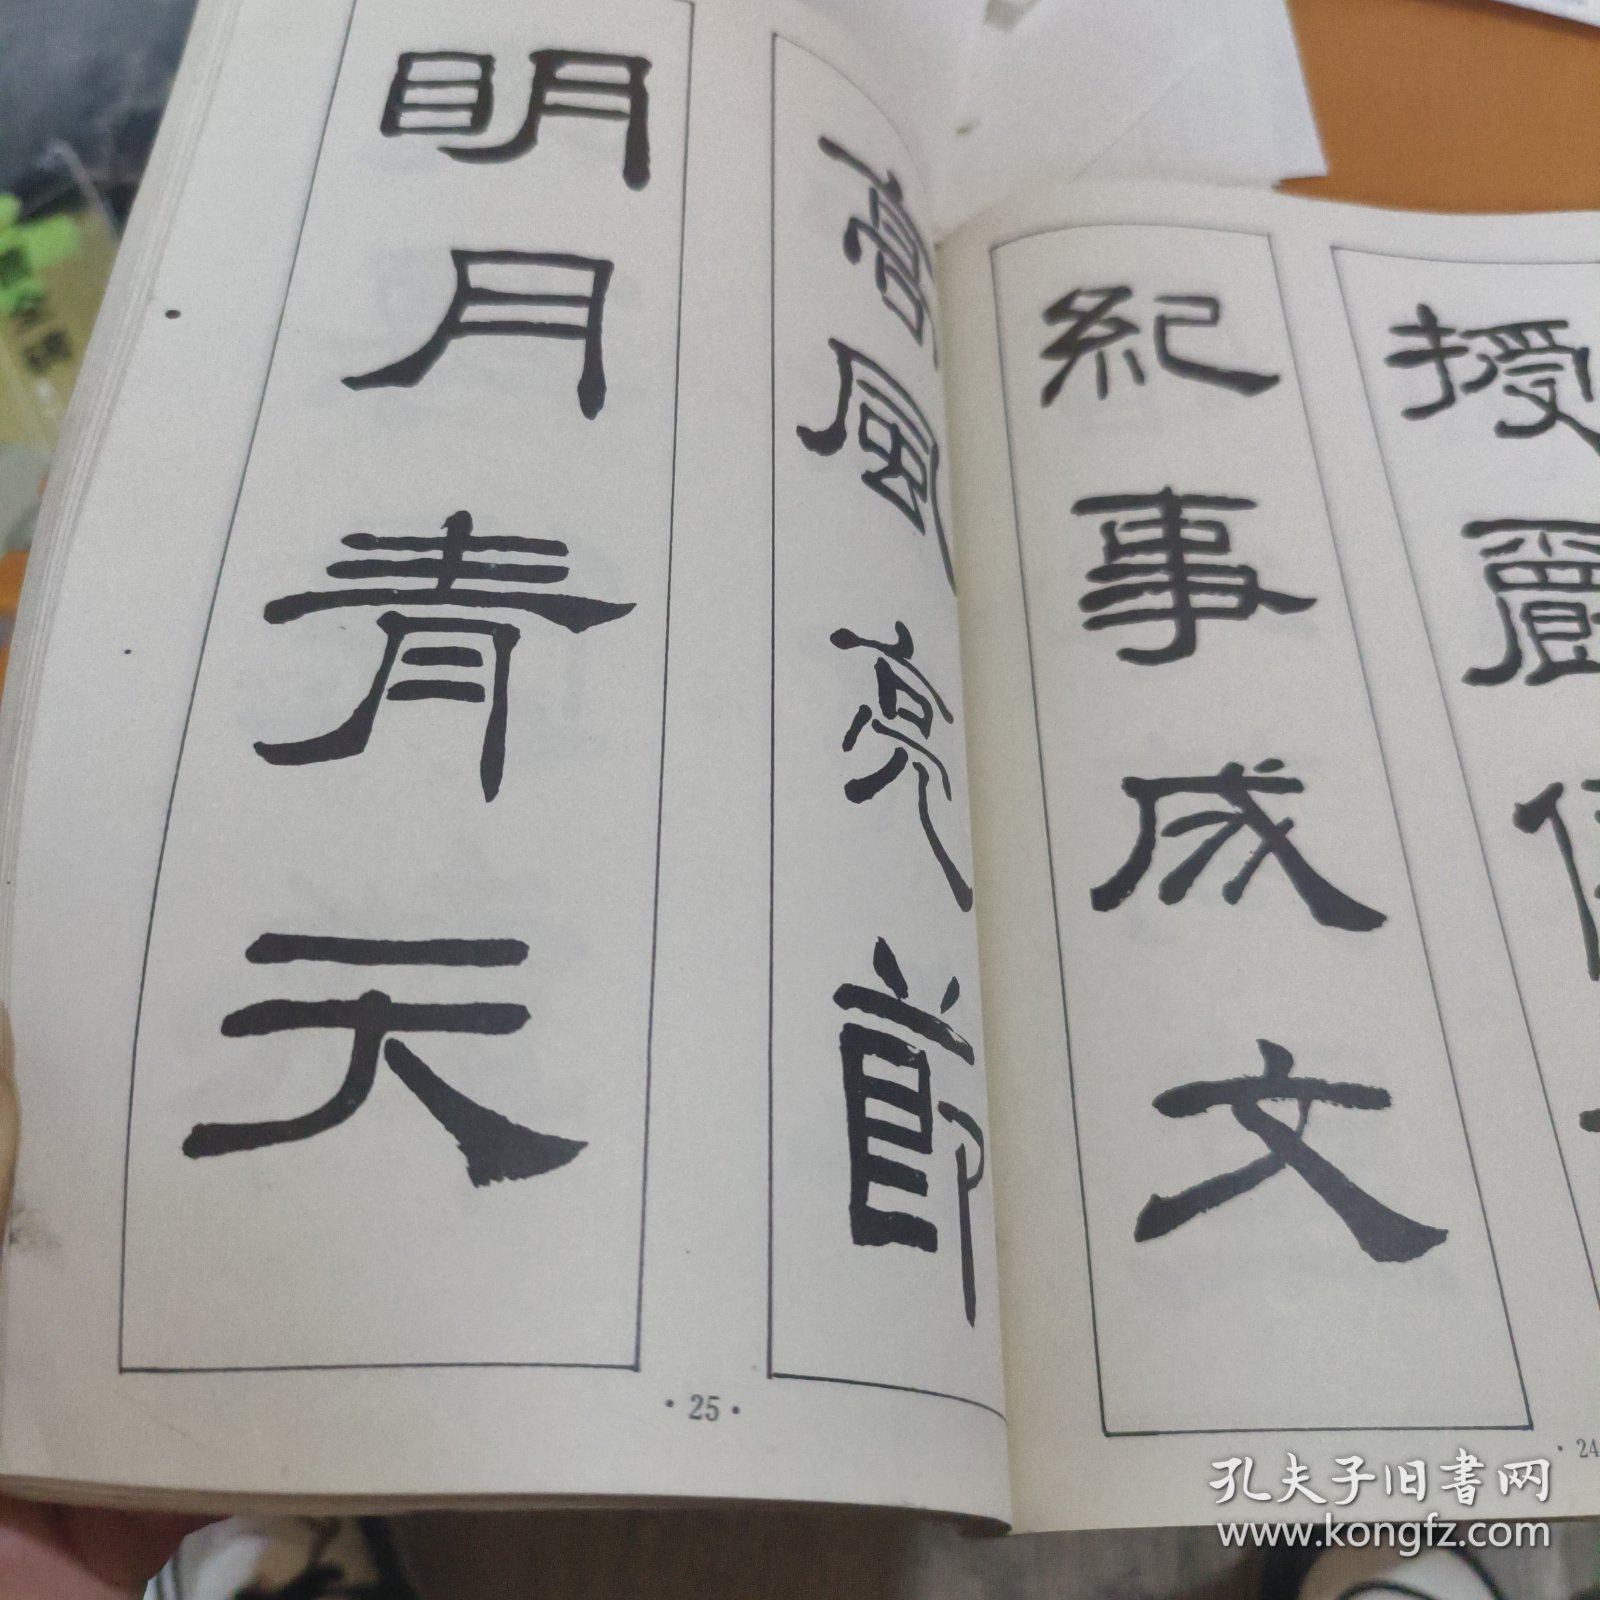 授爵
紀事成文
· 24
高風亮節
明月青天
· 25 ·
孔夫子旧書网
www.kongfz.com